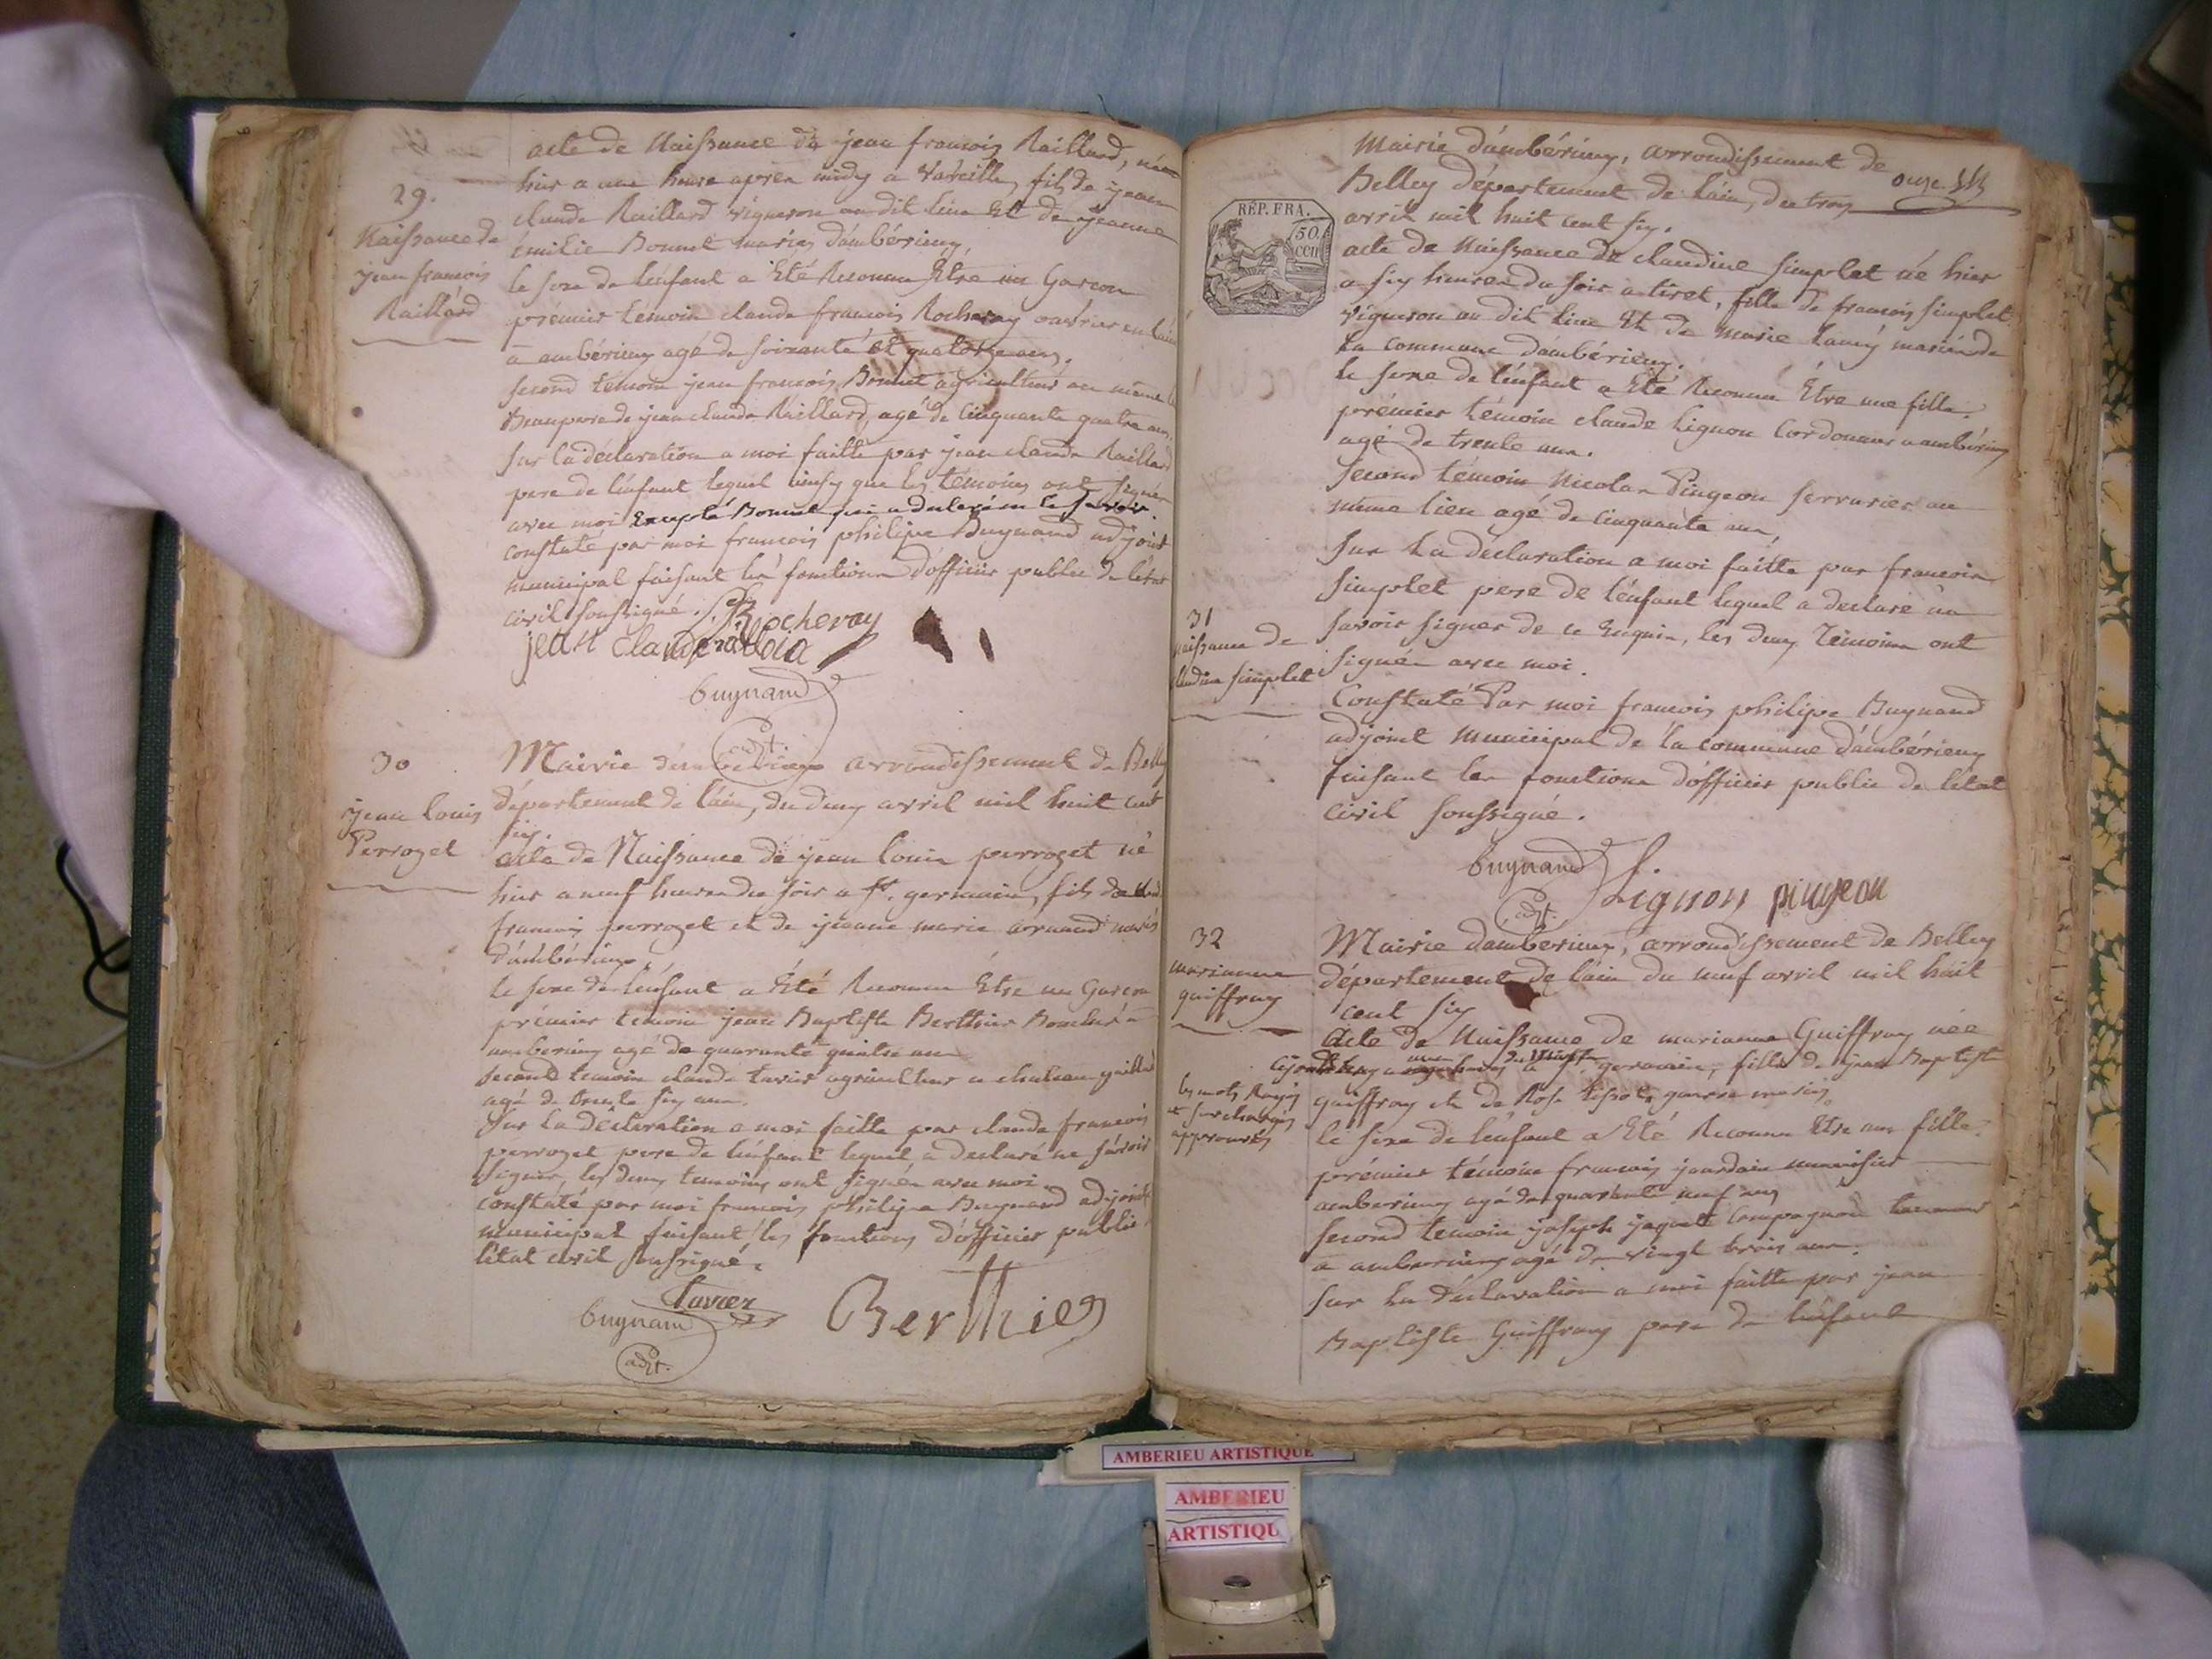 29.
Naissance de
jean francois
Raillard
acte de Naissance de jean francois Raillard, né
hier a une heure apres midy a Vareille, fils de jean
claude Raillard vigneron au dit lieu Et de jeanne
émilie Bonnet mariés d'ambérieux,
le sexe de l'enfant a Eté Reconnu Être un Garcon
prémier témoin claude francois Rocheray
a ambérieux agé de soixante et quatorze ans.
second témoin jean francois Bonnet agriculteur au même
Beaupere de jean claude Raillard, agé de Cinquante quatre ans.
sur la déclaration a moi faitte par jean claude Raillard
pere de l'enfant lequel ainsy que les témoins ont signés
avec moi Excepté Bonnet qui a declaré ne le savoir.
constaté par moi francois philipe Buynand adjoint
municipal faisant les fonctions d'officier public de l'état
civil soussigné.
Rocheray
jean claude
buynand
adjt.
30
jean louis
Perrozet
Mairie d'ambérieux arrondissement de Belley
département de l'ain, du deux avril mil huit cent
six.
acte de Naissance de jean louis perrozet né
hier a neuf heures du soir a st. germain, fils de
francois perrozet et de jeanne marie arnaud mariés
d'ambérieux,
le sexe de l'enfant a Eté Reconnu Être un Garcon
prémier témoin jean Baptiste Berthier Boucher a
amberieux agé de quarante quatre ans
second temoin claude tavier agriculteur a chateau gaillard
agé de trente six ans.
Sur la déclaration a moi faitte par claude francois
perrozet pere de l'enfant lequel a declaré ne savoir
signer, les deux temoins ont signés avec moi
constaté par moi francois philipe Buynand adjoint
municipal faisant les fonctions d'officier public
l'état civil soussigné.
tavier
buynand
Berthier
adjt.
onze.
RÉP. FRA.
50.
cen
Mairie d'ambérieux, arrondissement de
Belley département de l'ain, du trois
avril mil huit cent six.
acte de Naissance de claudine simplet né hier
a six heures du soir a tiret, fille de francois simplet
vigneron au dit lieu Et de marie lamy mariés de
la commune d'ambérieux.
le sexe de l'enfant a Eté Reconnu Être une fille.
prémier témoin claude Lignon Cordonnier a ambérieux
agé de trente ans.
second témoin Nicolas Pingeon serrurier au
même lieu agé de cinquante ans,
sur la déclaration a moi faitte par francois
simplet pere de l'enfant lequel a declaré ne
savoir signer de ce Enquis, les deux témoins ont
signés avec moi.
31
naissance de
claudine simplet
Constaté Par moi francois philipe Buynand
adjoint municipal de la commune d'ambérieux
faisant les fonctions d'officier public de l'état
civil soussigné.
buynand
adjt.
Lignon pingeon
32
marianne
guiffray
Mairie d'ambérieux, arrondissement de Belley
département de l'ain du neuf avril mil huit
cent six
Acte de Naissance de marianne Guiffray née
a st. germain, fille de jean Baptiste
guiffray et de Rose tissot mariés
les mots Rayés
et surchargés
approuvés
le sexe de l'enfant a Eté Reconnu Etre une fille.
prémier témoin francois jourdain menuisier
amberieux agé de quarante neuf ans
second temoin joseph jaquet Compagnon
a amberieux agé de vingt trois ans.
sur la déclaration a moi faitte par jean
Baptiste Guiffray pere de l'enfant
AMBERIEU ARTISTIQUE
AMBERIEU
ARTISTIQU